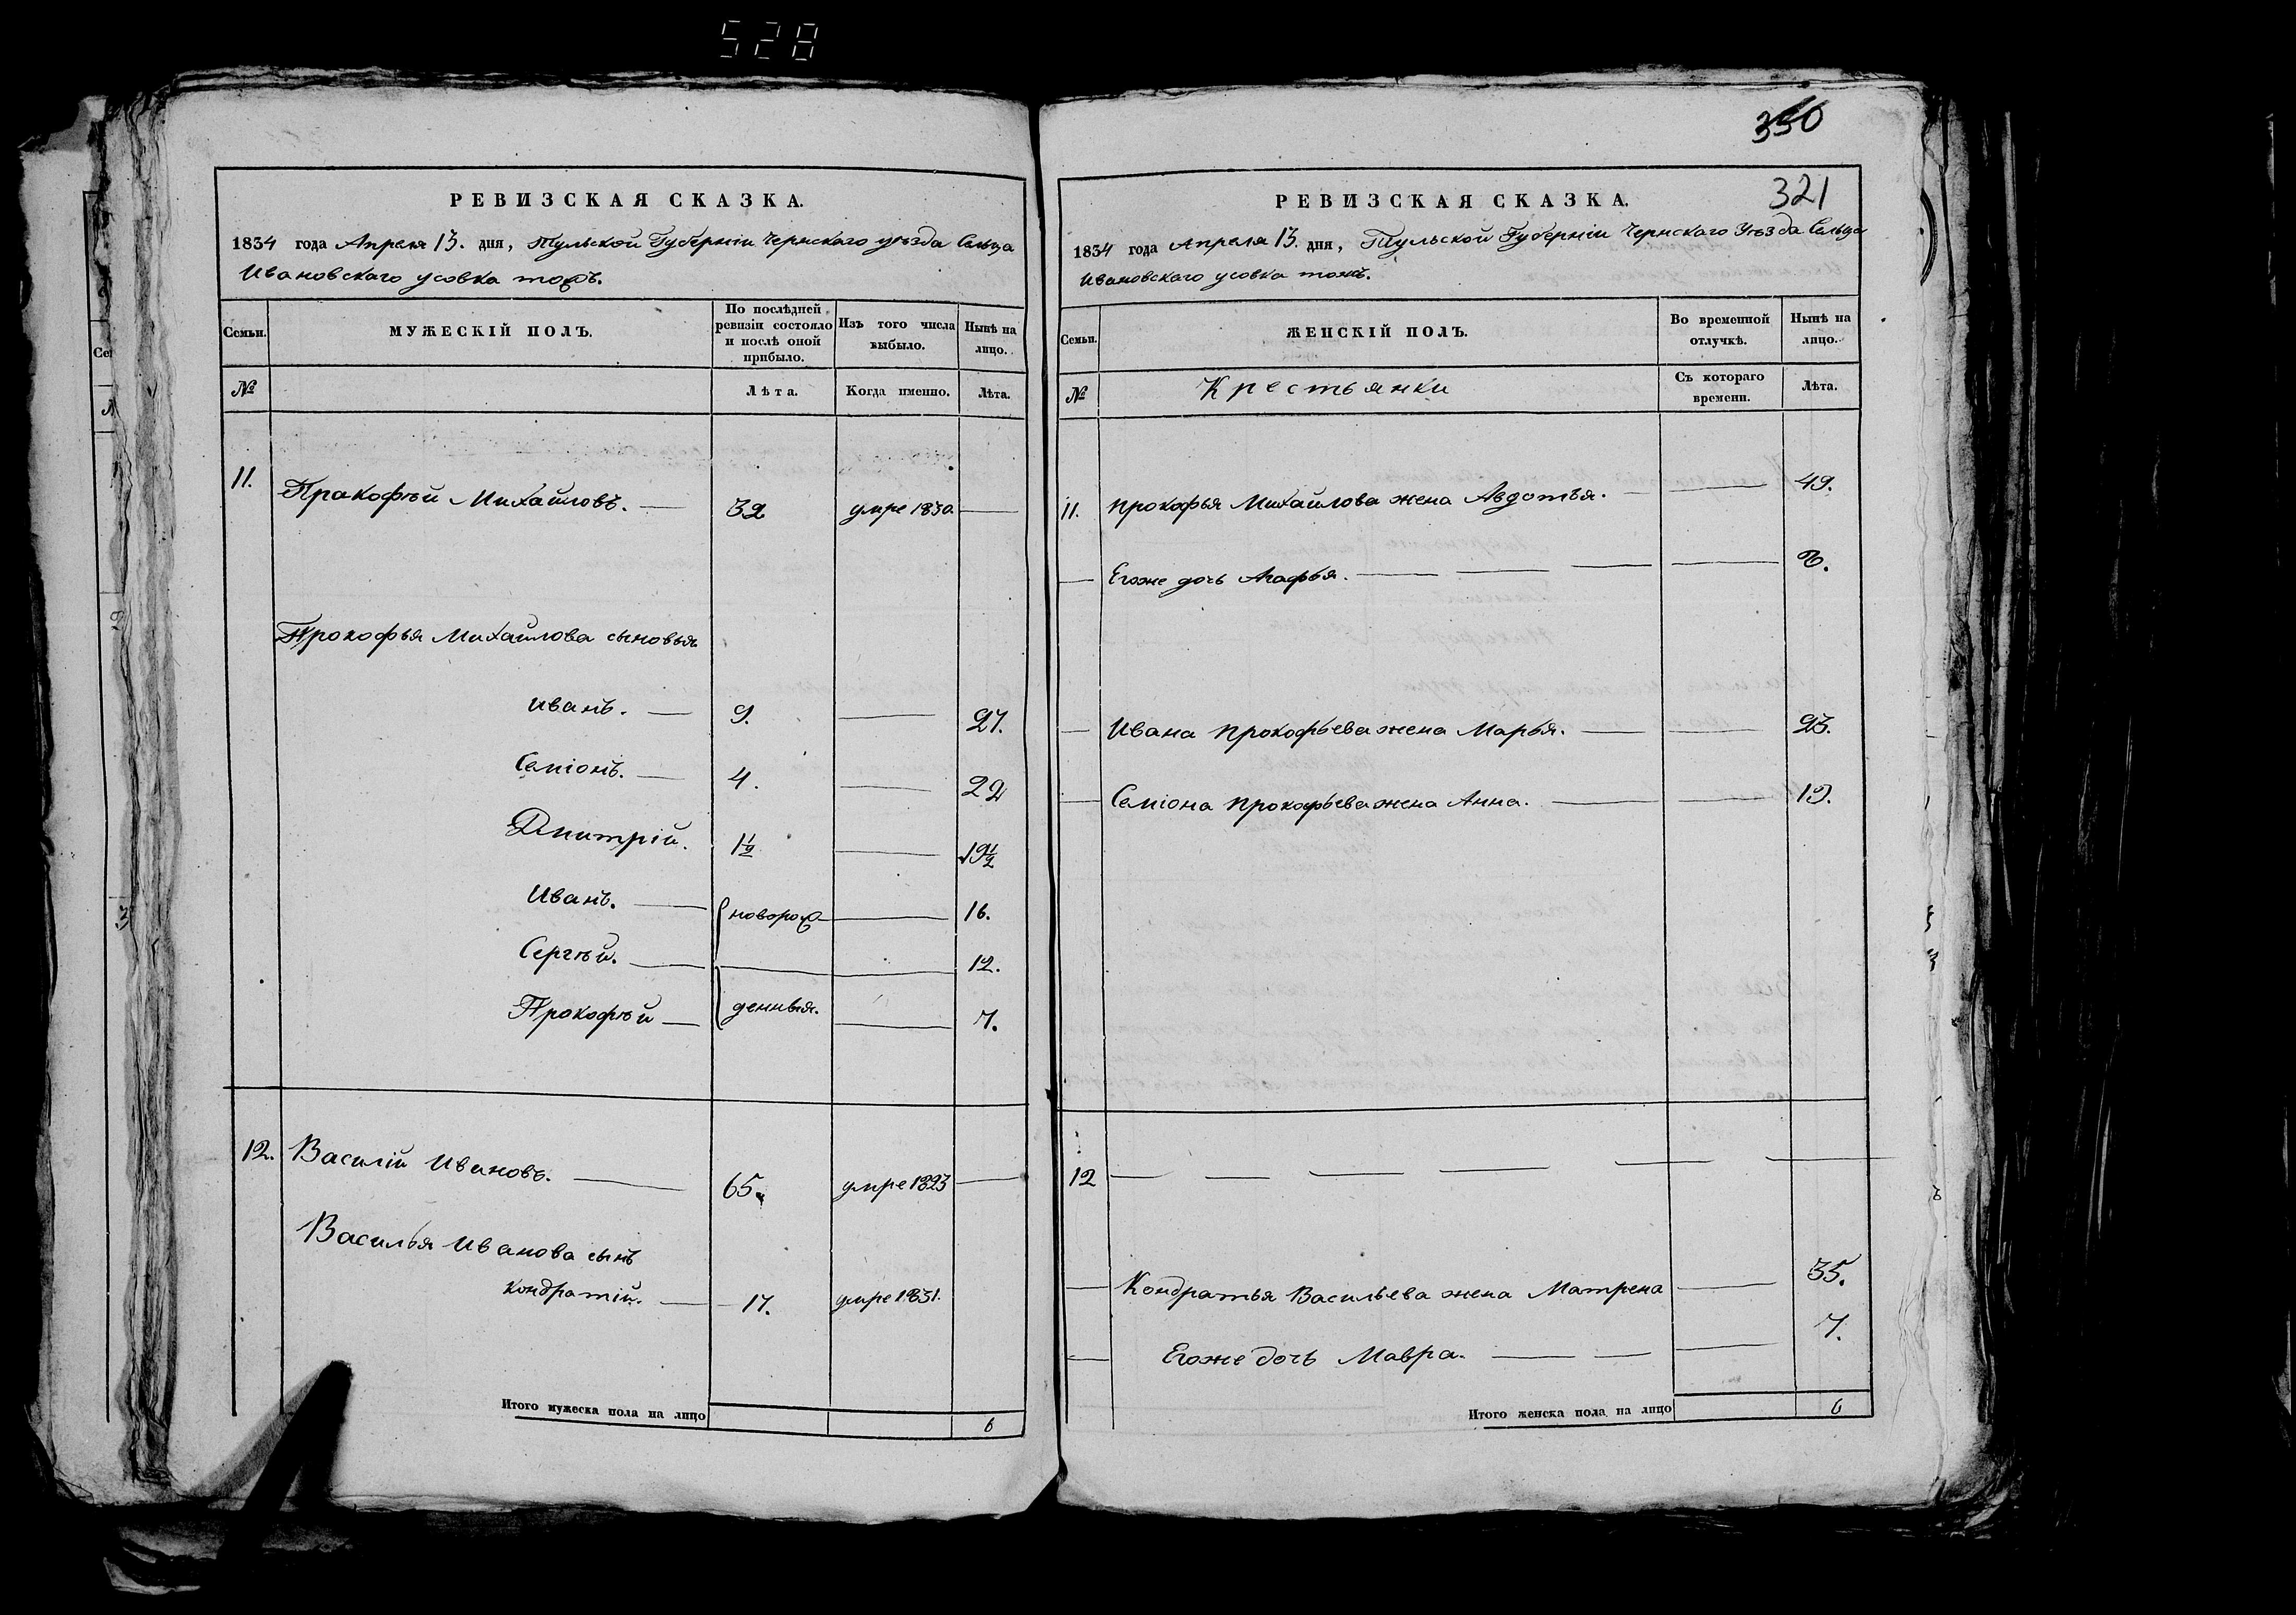 528
РЕВИЗСКАЯ СКАЗКА.
1834 года Апреля 13. дня, Тульской Губерніи Чернскаго уѣзда Сельца
Ивановскаго усовка тожъ.
Семьи. МУЖЕСКІЙ ПОЛЪ. По послѣдней ревизіи состояло и послѣ оной прибыло. Изъ того числа выбыло. Нынѣ на лицо.
№ Лѣта. Когда именно. Лѣта.
11. Пракофѣй Михайловъ. — 32 умре 1830 —
Прокофья Михайлова сыновья
Иванъ. — 9. — 27.
Семіонъ. — 4. — 22
Дмитрій. 1½ — 19½
Иванъ. — новорож — 16.
Сергѣй. — — 12.
Прокофѣй — денныя. — 7.
12. Василій Ивановъ. — 65. умре 1823 —
Василья Иванова сынъ
Кондратій. — 17. умре 1831.
Итого мужеска пола на лицо 6
350
321
РЕВИЗСКАЯ СКАЗКА.
1834 года Апреля 13. дня, Тульской Губерніи Чернскаго Уѣзда Сельца
Ивановскаго усовка тожъ.
Семьи. ЖЕНСКІЙ ПОЛЪ. Во временной отлучкѣ. Нынѣ на лицо.
№ Крестьянки Съ котораго времени. Лѣта.
11. прокофья Михайлова жена Авдотья. — — 49.
— Егоже дочь Агафья. — — — —
— Ивана прокофьева жена Марья. — — 23.
— Семіона прокофьева жена Анна. — — 19.
12 — — — — — —
— Кондратья Васильева жена Матрена — 35.
— Егоже дочь Мавра. — — — 7.
Итого женска пола на лицо 6